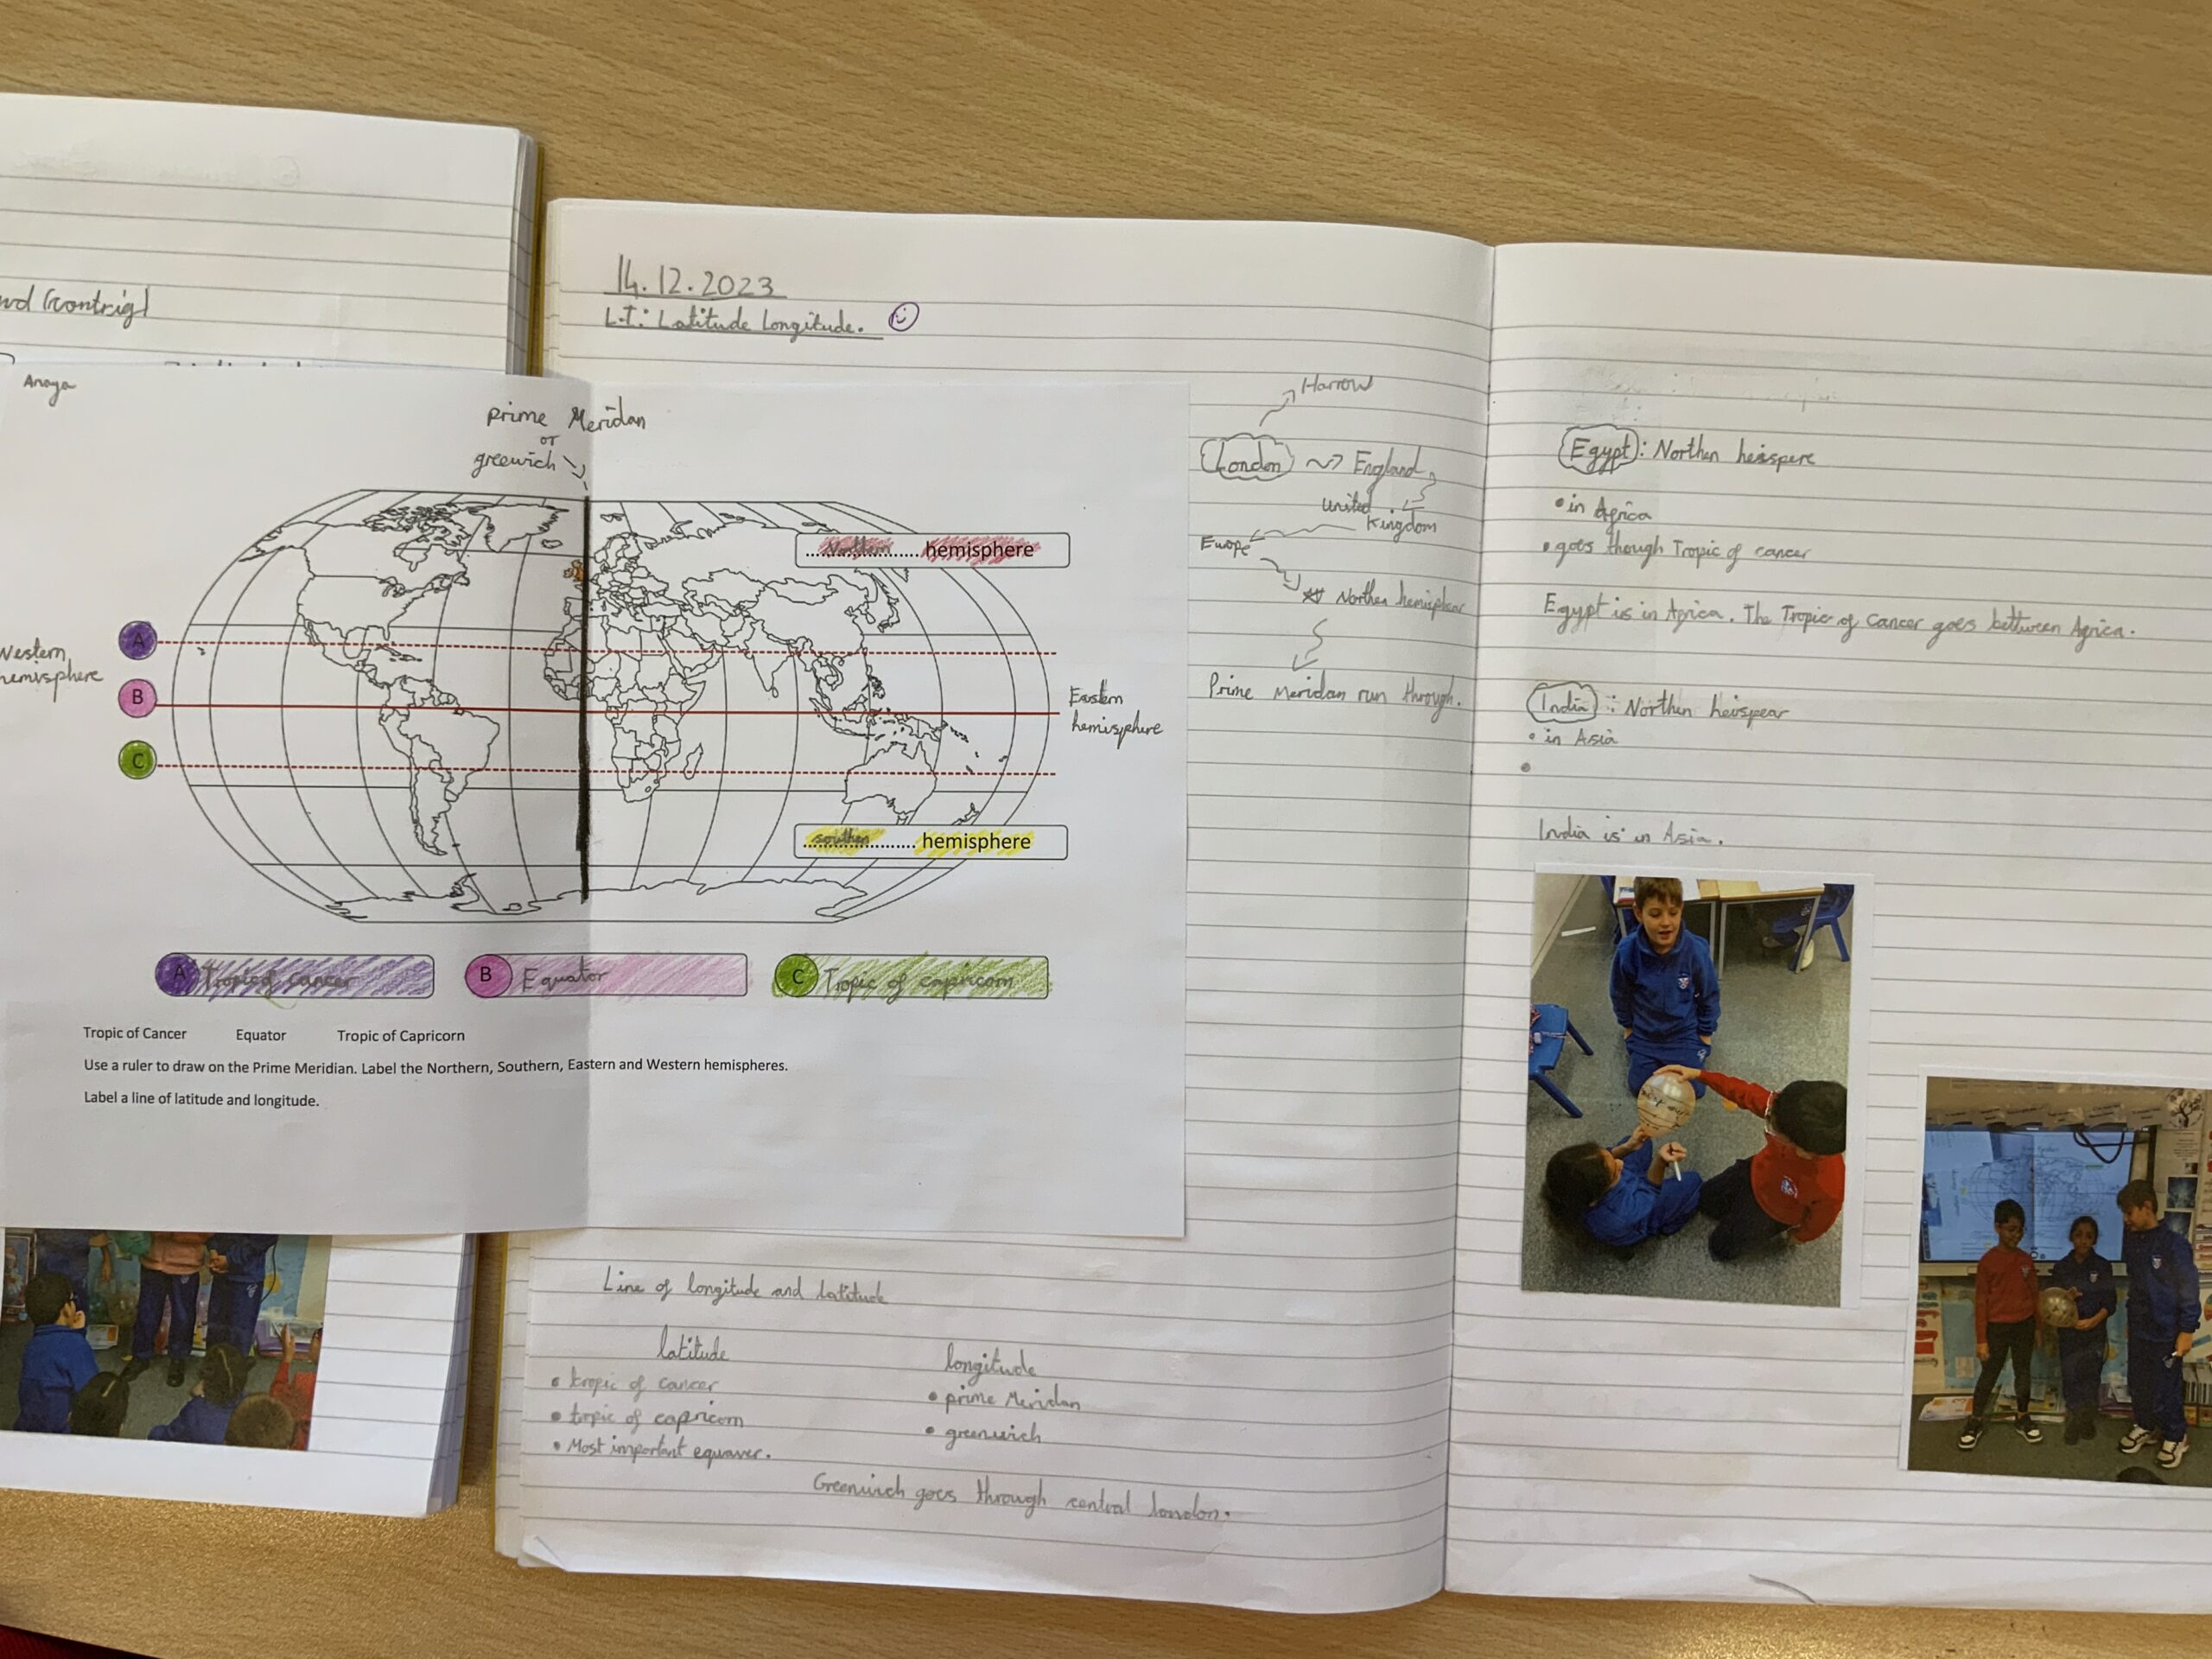 14.12.2023
L.T: Latitude Longitude.
Anaya
prime Meridan
or
greewich
Northern hemisphere
A
Western
hemisphere
B
Eastern
hemisphere
C
southern hemisphere
A Tropic of cancer
B Equator
C Tropic of capricorn
Tropic of Cancer Equator Tropic of Capricorn
Use a ruler to draw on the Prime Meridian. Label the Northern, Southern, Eastern and Western hemispheres.
Label a line of latitude and longitude.
Harrow
London England
United
Kingdom
Europe
Northen hemisphear
Prime Meridan run through.
Line of longitude and latitude
latitude
• tropic of cancer
• tropic of capricorn
• Most important equaver.
longitude
• prime Meridan
• greenwich
Greenwich goes through central london.
Egypt: Northen heispere
• in Africa
• goes though Tropic of cancer
Egypt is in Africa. The Tropic of Cancer goes bettween Africa.
India: Northen heispear
• in Asia
•
India is in Asia.